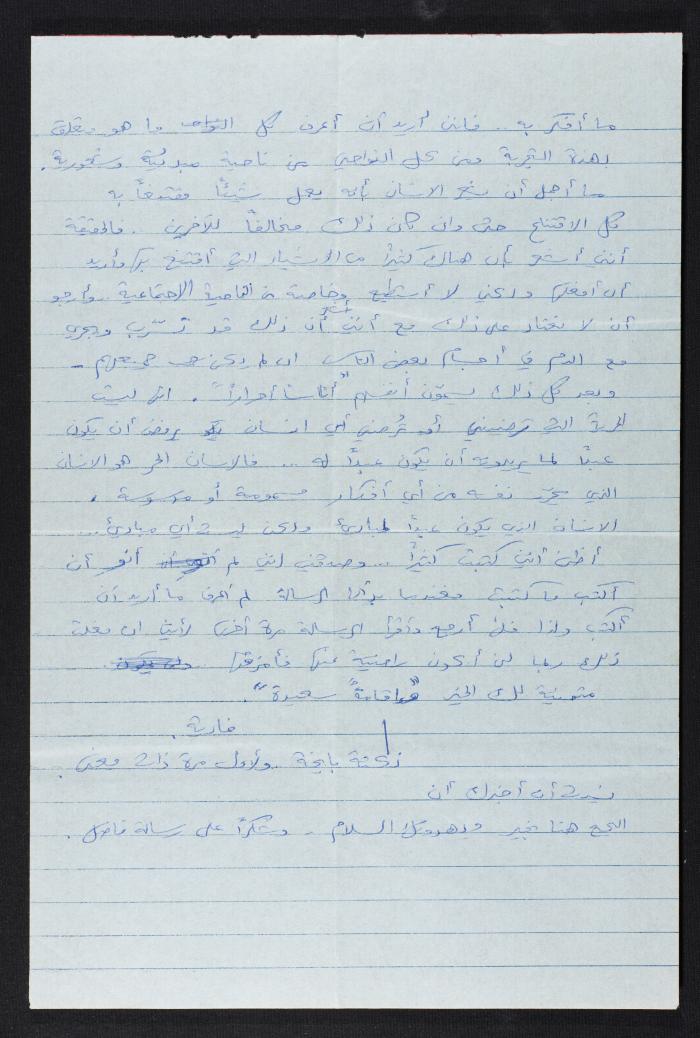 ما أفكر به .. فانني أريد أن أعرف كل النواحي وما هو متعلق
بهذه التجربة ومن كل النواحي من ناحية مبدئية وشعورية .
ما أجمل أن يشعر الانسان بأنه يعمل شيئاً مقتنعاً به
كل الاقتناع حتى وان كان ذلك مخالفاً للآخرين . فالحقيقة
أنني أشعر بأن هناك كثيراً من الأشياء التي أقتنع بها وأريد
أن أفعلها ولكن لا أستطيع وخاصة من الناحية الاجتماعية وأرجو
أن لا نعتاد على ذلك مع أنني أشعر أن ذلك قد تسرّب ويجري
مع الدم في أجسام بعض الناس ان لم يكن جميعهم -
وبعد كل ذلك يسمّون أنفسهم "أناساً أحراراً" . انها ليست
الحرية التي ترضيني أو تُرضي أي انسان يرفض أن يكون
عبداً لما يريدونه أن يكون عبداً له ... فالانسان الحر هو الانسان
الذي يحرّر نفسه من أي أفكار مسمومة أو مدسوسة .
الانسان الذي يكون عبداً لمبادئ ولكن ليست أي مبادئ ...
أظن أنني كتبت كثيراً ... وصدقني انني لم أنو أن
أكتب ما كتبت فعندما بدأت الرسالة لم أعرف ما أريد أن
أكتب ولذا فلن أرجع وأقرأ الرسالة مرة أخرى لأنني ان فعلت
ذلك ربما لن أكون راضية عنها فأمزقها
متمنية لك الخير "واقامة سعيدة" .
فادية .
نكتة بايخة ولأول مرة ذات معنى .
نسيت أن أخبرك أن
الجميع هنا بخير ويهدونك السلام - وشكراً على رسالة فاضل .